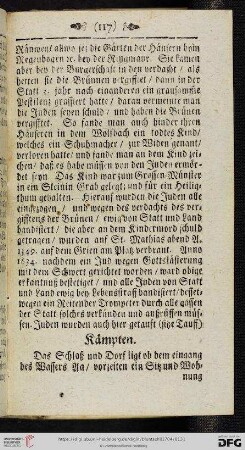 (117)
Rünwen/ allwo jez die Gärten der Häusern beim
Regenbogen ꝛc. bey der Ringmaur. Sie kamen
aber bey der Burgerschafft in den verdacht / als
hetten sie die Brünnen vergifftet / dann in der
Statt 2. jahr nach einanderen ein grausamme
Pestilenz grassiert hatte / daran vermeinte man
die Juden seyen schuld / und haben die Brünen
vergifftet. So fande man auch hinder ihren
Häuseren in dem Wolfbach ein todtes Kind/
welches ein Schuhmacher / zur Widen genant/
verlohren hatte; und fande man an dem Kind
daß es habe müssen von den Juden ermördet
seyn. Das Kind war zum Grossen Münster
in ein Steinin Grab gelegt; und für ein Heiligthum
gehalten. Hierauf wurden die Juden alle
eingezogen / und wegen des verdachts des vergifftens
der Brünen / ewig von Statt und Land
bandisiert / die aber an dem Kindermord schuld
getragen / wurden auf St. Mathias abend A.
1349. auf dem Grien am Platz verbrant. Anno
1634. nachdem ein Jud wegen Gottslästerung
mit dem Schwert gerichtet worden / ward obige
erkantnuß bestätet / und alle Juden von Statt
und Land ewig bey Lebensstraff bandisiert/ deßwegen
ein Reitender Trompeter durch alle gassen
der Statt solches verkünden und außrüffen müssen.
Juden wurden auch hier getauft (sihe Tauff)
Kämpten.
Das Schloß und Dorf ligt ob dem eingang
des Wassers Aa/ vorzeiten ein Sitz und Wohnung